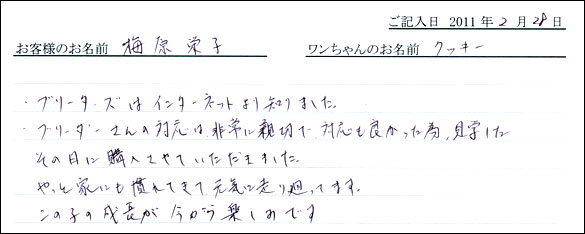 ご記入日 2011 年 2 月 28 日
お客様のお名前 梅原 栄子 ワンちゃんのお名前 クッキー
・ブリーダーズはインターネットより知りました。
・ブリーダーさんの対応は、非常に親切で、対応も良かった為、見学した
その日に購入させていただきました。
やっと家にも慣れてきて、元気に走り廻ってます。
この子の成長が今から楽しみです